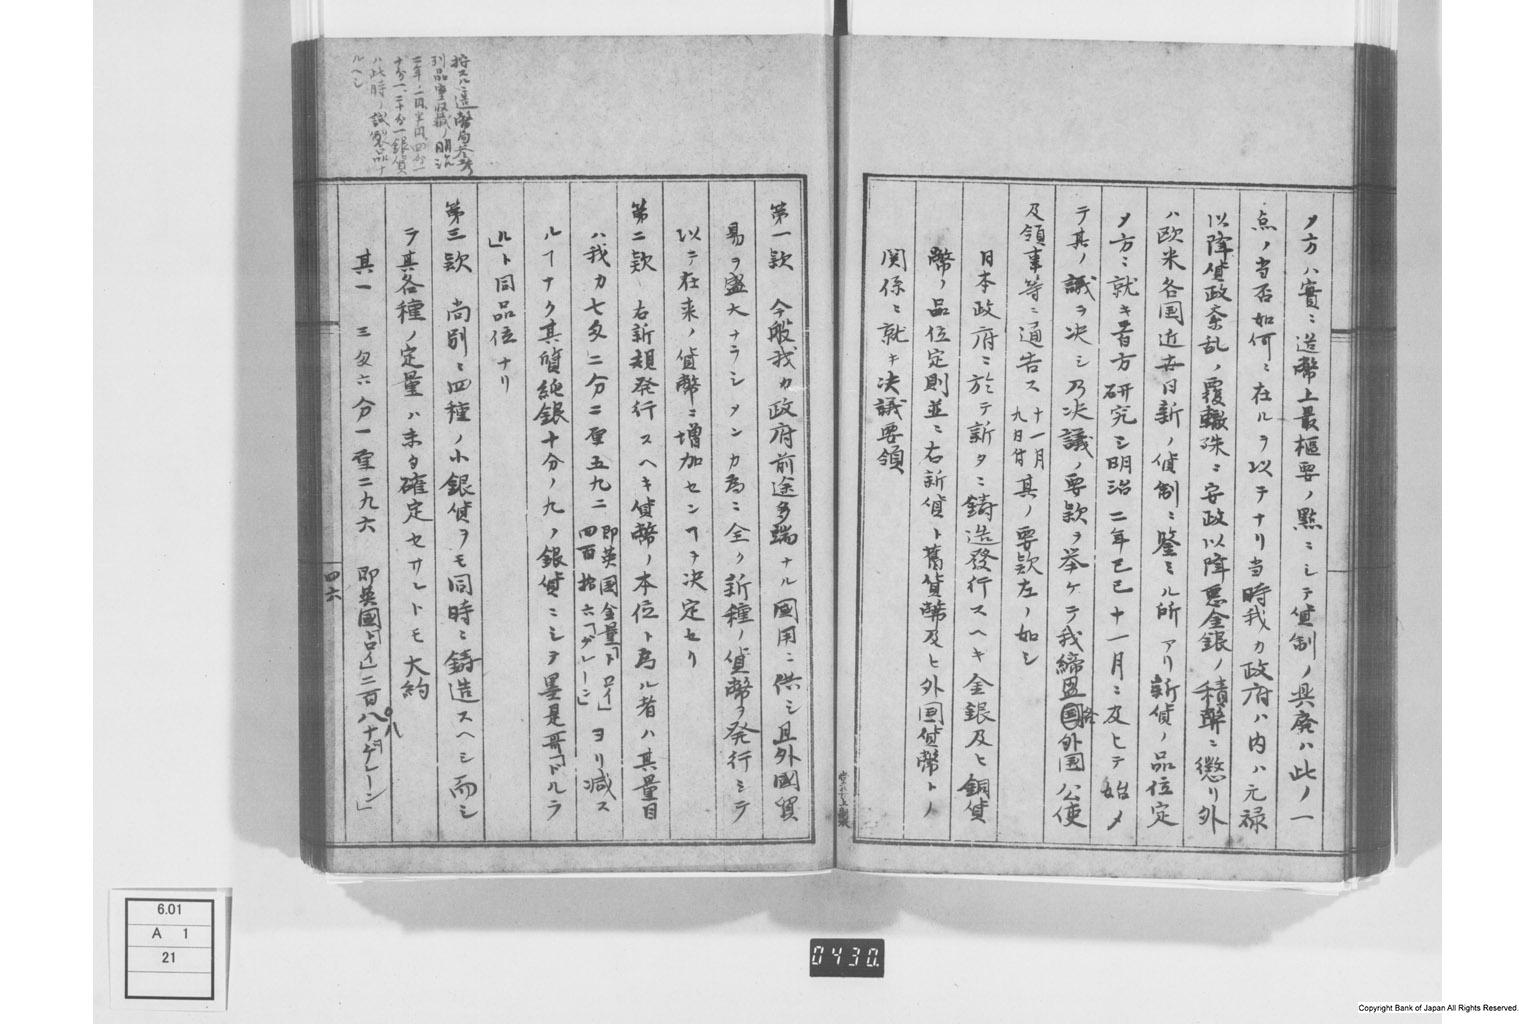 タ方ハ實ニ造幣上最樞要ノ點ニシテ貨制ノ興廃ハ此ノ一
点ノ当否如何ニ在ルヲ以テナリ当時我カ政府ハ内ハ元禄
以降貨政紊乱ノ覆轍殊ニ安政以降悪金銀ノ積弊ニ懲リ外
ハ欧米各国近世日新ノ貨制ニ鑒ミル所アリ新貨ノ品位定
メ方ニ就キ百方研究シ明治二年己巳十一月ニ及ヒテ始メ
テ其ノ議ヲ決シ乃決議ノ要款ヲ挙ケテ我締盟各国外国公使
及領事等ニ通告ス十一月九日付其ノ要款左ノ如シ
日本政府ニ於テ新タニ鋳造發行スヘキ金銀及ヒ銅貨
幣ノ品位定則並ニ右新貨ト舊貨幣及ヒ外国貨幣トノ
関係ニ就キ决議要領
第一款　今般我カ政府前途多端ナル國用ニ供シ且外國貿
易ヲ盛大ナラシメンカ為ニ全ク新種ノ貨幣ヲ発行シテ
以テ在来ノ貨幣ニ増加センヿヲ决定セリ
第二款　右新規発行スヘキ貨幣ノ本位ト為ル者ハ其量目
ハ我カ七匁二分二厘五九二即英国金量「トロイ」四百拾六「グレーン」ヨリ減ス
ルヿナク其質純銀十分ノ九ノ銀貨ニシテ墨是哥「ドルラ
ル」ト同品位ナリ
第三款　尚別ニ四種ノ小銀貨ヲモ同時ニ鋳造スヘシ而シ
テ其各種ノ定量ハ未タ確定セサレトモ大約
其一　三匁六分一厘二九六　即英國「トロイ」二百八「グレーン」
四六
ニ造幣局参考
列品室収蔵ノ明治
二年ノ一円、半円、四分一
十分一、二十分一銀貨
ハ此時ノ試製品ナ
ルヘシ
6.01
A 1
21
0430
Copyright Bank of Japan All Rights Reserved.